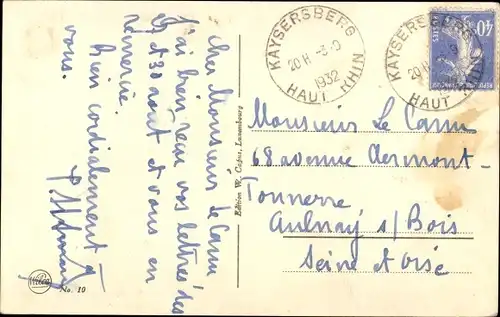 Cher Monsieur Le Camu
J'ai bien reçu vos lettres des
et 30 août et vous en
remercie.
Bien cordialement à
vous.
Edition W. Capus, Luxembourg
No. 10
KAYSERSBERG
20H -3-9
1932
HAUT RHIN
KAYSERSBERG
20H
HAUT RHIN
40
Monsieur Le Camu
68 avenue Clermont-
Tonnerre
Aulnay s/Bois
Seine et Oise